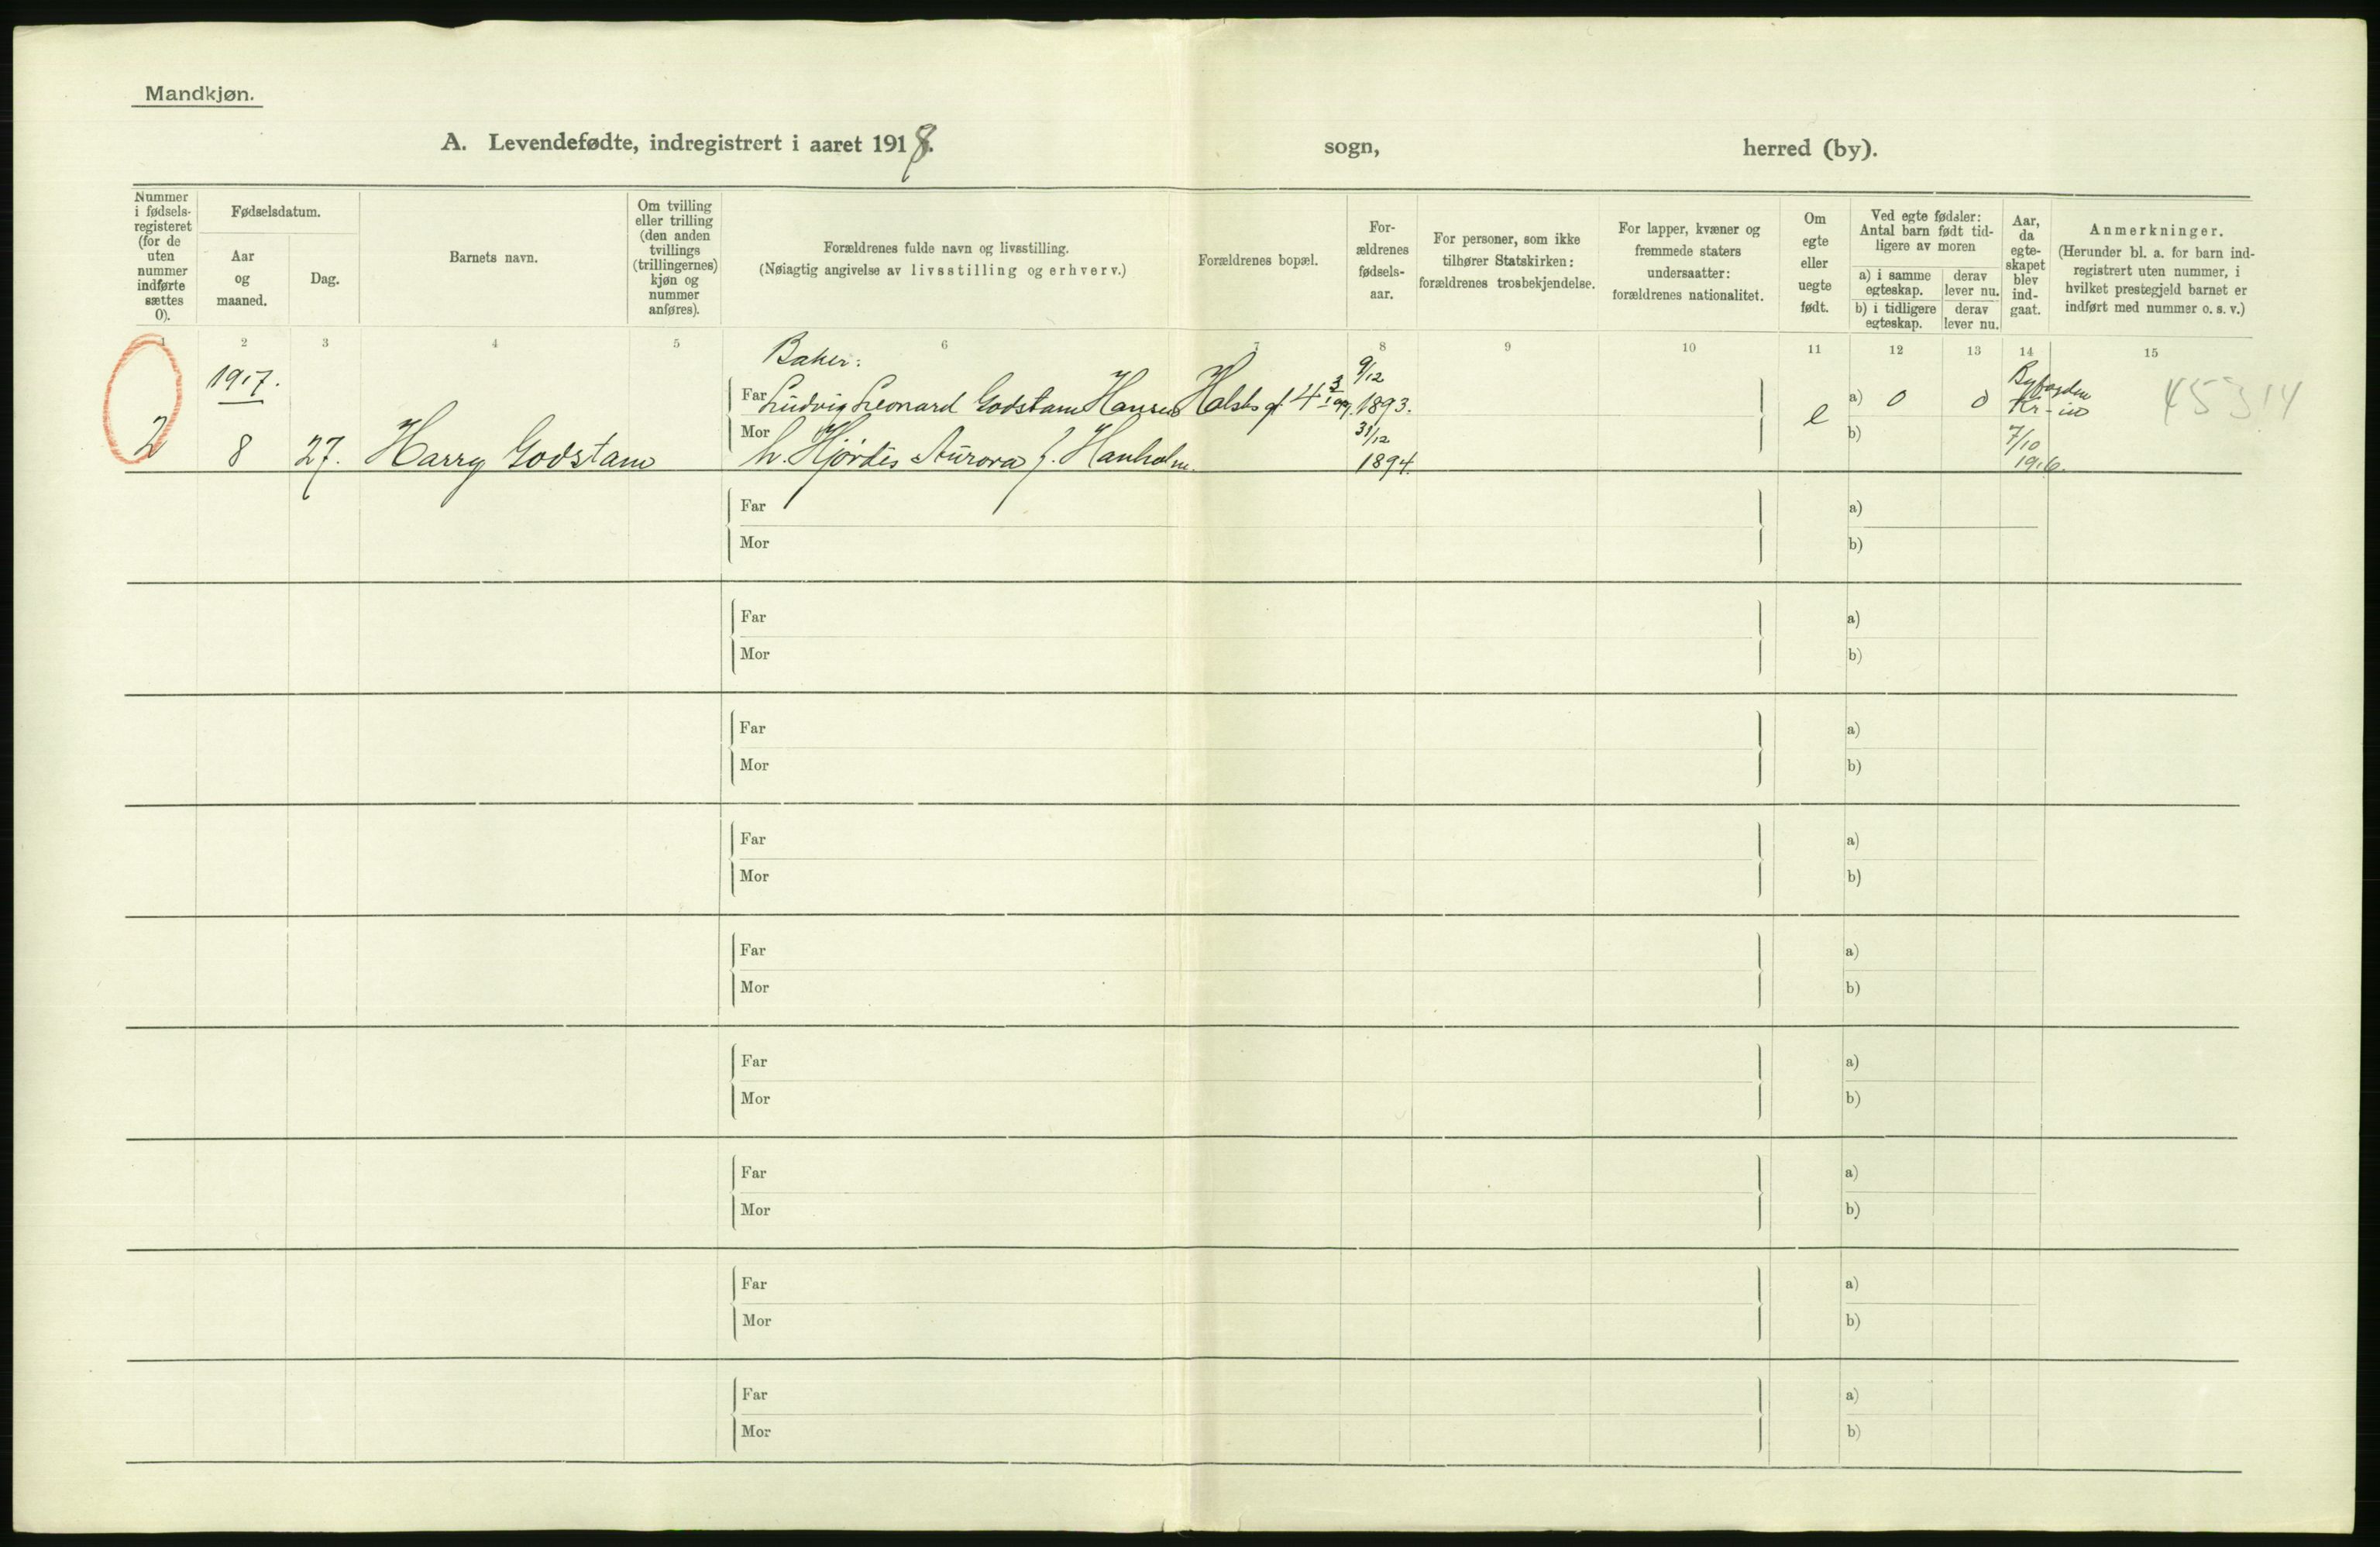 Mandkjøn.
A. Levendefødte, indregistrert i aaret 1918.
sogn,
herred (by).
Nummer
i fødsels-
registeret
(for de
uten
nummer
indførte
sættes
0).
Fødselsdatum.
Aar
og
maaned.
Dag.
Barnets navn.
Om tvilling
eller trilling
(den anden
tvillings
(trillingernes)
kjøn og
nummer
anføres).
Forældrenes fulde navn og livsstilling.
(Nøiagtig angivelse av livsstilling og erhverv.)
Forældrenes bopæl.
For-
ældrenes
fødsels-
aar.
For personer, som ikke
tilhører Statskirken:
forældrenes trosbekjendelse.
For lapper, kvæner og
fremmede staters
undersaatter:
forældrenes nationalitet.
Om
egte
eller
uegte
født.
Ved egte fødsler:
Antal barn født tid-
ligere av moren
a) i samme
egteskap.
derav
lever nu.
b) i tidligere
egteskap.
derav
lever nu.
Aar,
da
egte-
skapet
blev
ind-
gaat.
Anmerkninger.
(Herunder bl. a. for barn ind-
registrert uten nummer, i
hvilket prestegjeld barnet er
indført med nummer o. s. v.)
1 2 3 4 5 6 7 8 9 10 11 12 13 14 15
1917.
Baker:
9/12
Byfogden
Far Ludvig Leonard Godstam Hansen Holsts gt 4 1893.
a) 0 0 Kr-ia
45314
2 8 27. Harry Godstam
Mor h. Hjørdis Aurora f. Hanholm.
31/12
1894.
e
b)
7/10
1916.
Far a)
Mor b)
Far a)
Mor b)
Far a)
Mor b)
Far a)
Mor b)
Far a)
Mor b)
Far a)
Mor b)
Far a)
Mor b)
Far a)
Mor b)
Far a)
Mor b)